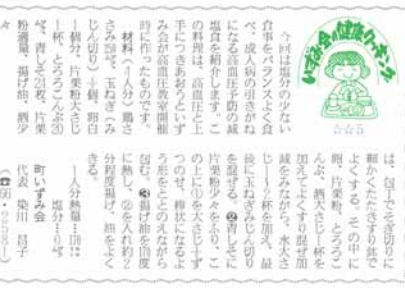 いずみ会の健康クッキング
☆☆5
今回は塩分の少ない
食事をバランスよく食
べ、成人病の引きがね
になる高血圧予防の減
塩食を紹介します。こ
の料理は、高血圧と上
手につきあおうといず
み会が高血圧教室開催
時に作ったものです。
材料(4人分)鶏さ
さみ 玉ねぎ(み
じん切り) 個、卵白
1個分、片栗粉大さじ
1杯、とろろこんぶ20
青しそ24枚、片栗
粉適量、揚げ油、酒少
々
は、包丁でそぎ切りに
細かくたたきすり鉢で
よくする。その中に
卵、片栗粉、とろろこ
んぶ、酒大さじ1杯を
加えてよくすり混ぜ加
減をみながら、水大さ
じ1〜2杯を加え、最
後に玉ねぎみじん切り
を混ぜる。❷青しそに
片栗粉少々をふり、こ
の上に①を大さじ1ず
つのせ、棒状になるよ
う形をととのえながら
包む。❸揚げ油を170度
に熱し、②を入れ約2
分程度揚げ、油をよく
きる。
1人分熱量…
塩分…
町いずみ会
代表 染川 昌子